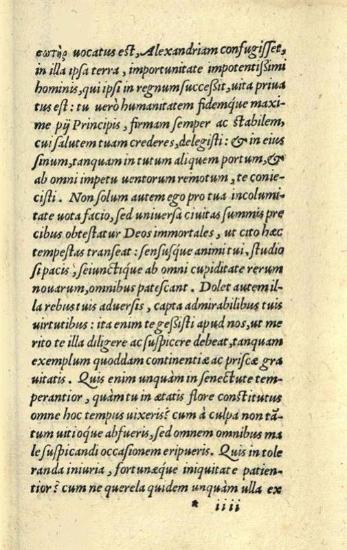 σωτὴρ uocatus est, Alexandriam confugisset,
in illa ipsa terra, importunitate impotentissimi
hominis, qui ipsi in regnum successit, uita priua
tus est: tu uerò humanitatem fidemque maxi-
me pij Principis, firmam semper ac stabilem,
cui salutem tuam crederes, delegisti: & in eius
sinum, tanquam in tutum aliquem portum, &
ab omni impetu uentorum remotum, te conie-
cisti. Non solum autem ego pro tua incolumi
tate uota facio, sed uniuersa ciuitas summis pre
cibus obtestatur Deos immortales, ut citò hæc
tempestas transeat: sensusque animi tui, studio
si pacis, seiunctique ab omni cupiditate rerum
nouarum, omnibus patescant. Dolet autem il-
la rebus tuis aduersis, capta admirabilibus tuis
uirtutibus: ita enim te gessisti apud nos, ut me
rito te illa diligere ac suspicere debeat, tanquam
exemplum quoddam continentiæ ac priscæ gra
uitatis. Quis enim unquàm in senectute tem-
perantior, quàm tu in ætatis flore constitutus
omne hoc tempus uixeris? cum à culpa non tã-
tum uitioque abfueris, sed omnem omnibus ma
le suspicandi occasionem eripueris. Quis in tole
randa iniuria, fortunæque iniquitate patien-
tior? cum ne querela quidem unquàm ulla ex
* iiii